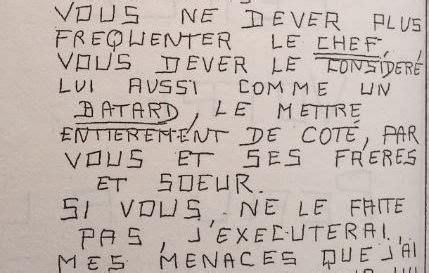 VOUS NE DEVER PLUS
FREQUENTER LE CHEF,
VOUS DEVER LE CONSIDERÉ
LUI AUSSI COMME UN
BATARD, LE METTRE
ENTIEREMENT DE COTÉ, PAR
VOUS ET SES FRERES
ET SOEUR.
SI VOUS, NE LE FAITE
PAS, J'EXECUTERAI,
MES MENACES QUE J'AI